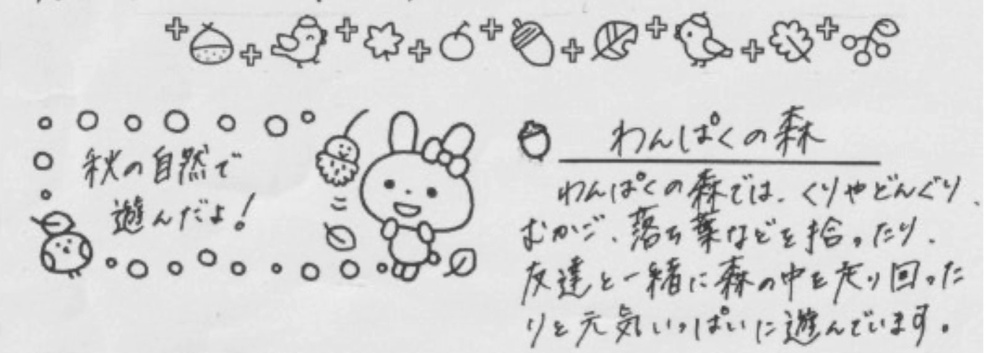 秋の自然で
遊んだよ!
わんぱくの森
わんぱくの森では、くりやどんぐり、
むかご、落ち葉などを拾ったり、
友達と一緒に森の中を走り回った
りと元気いっぱいに遊んでいます。